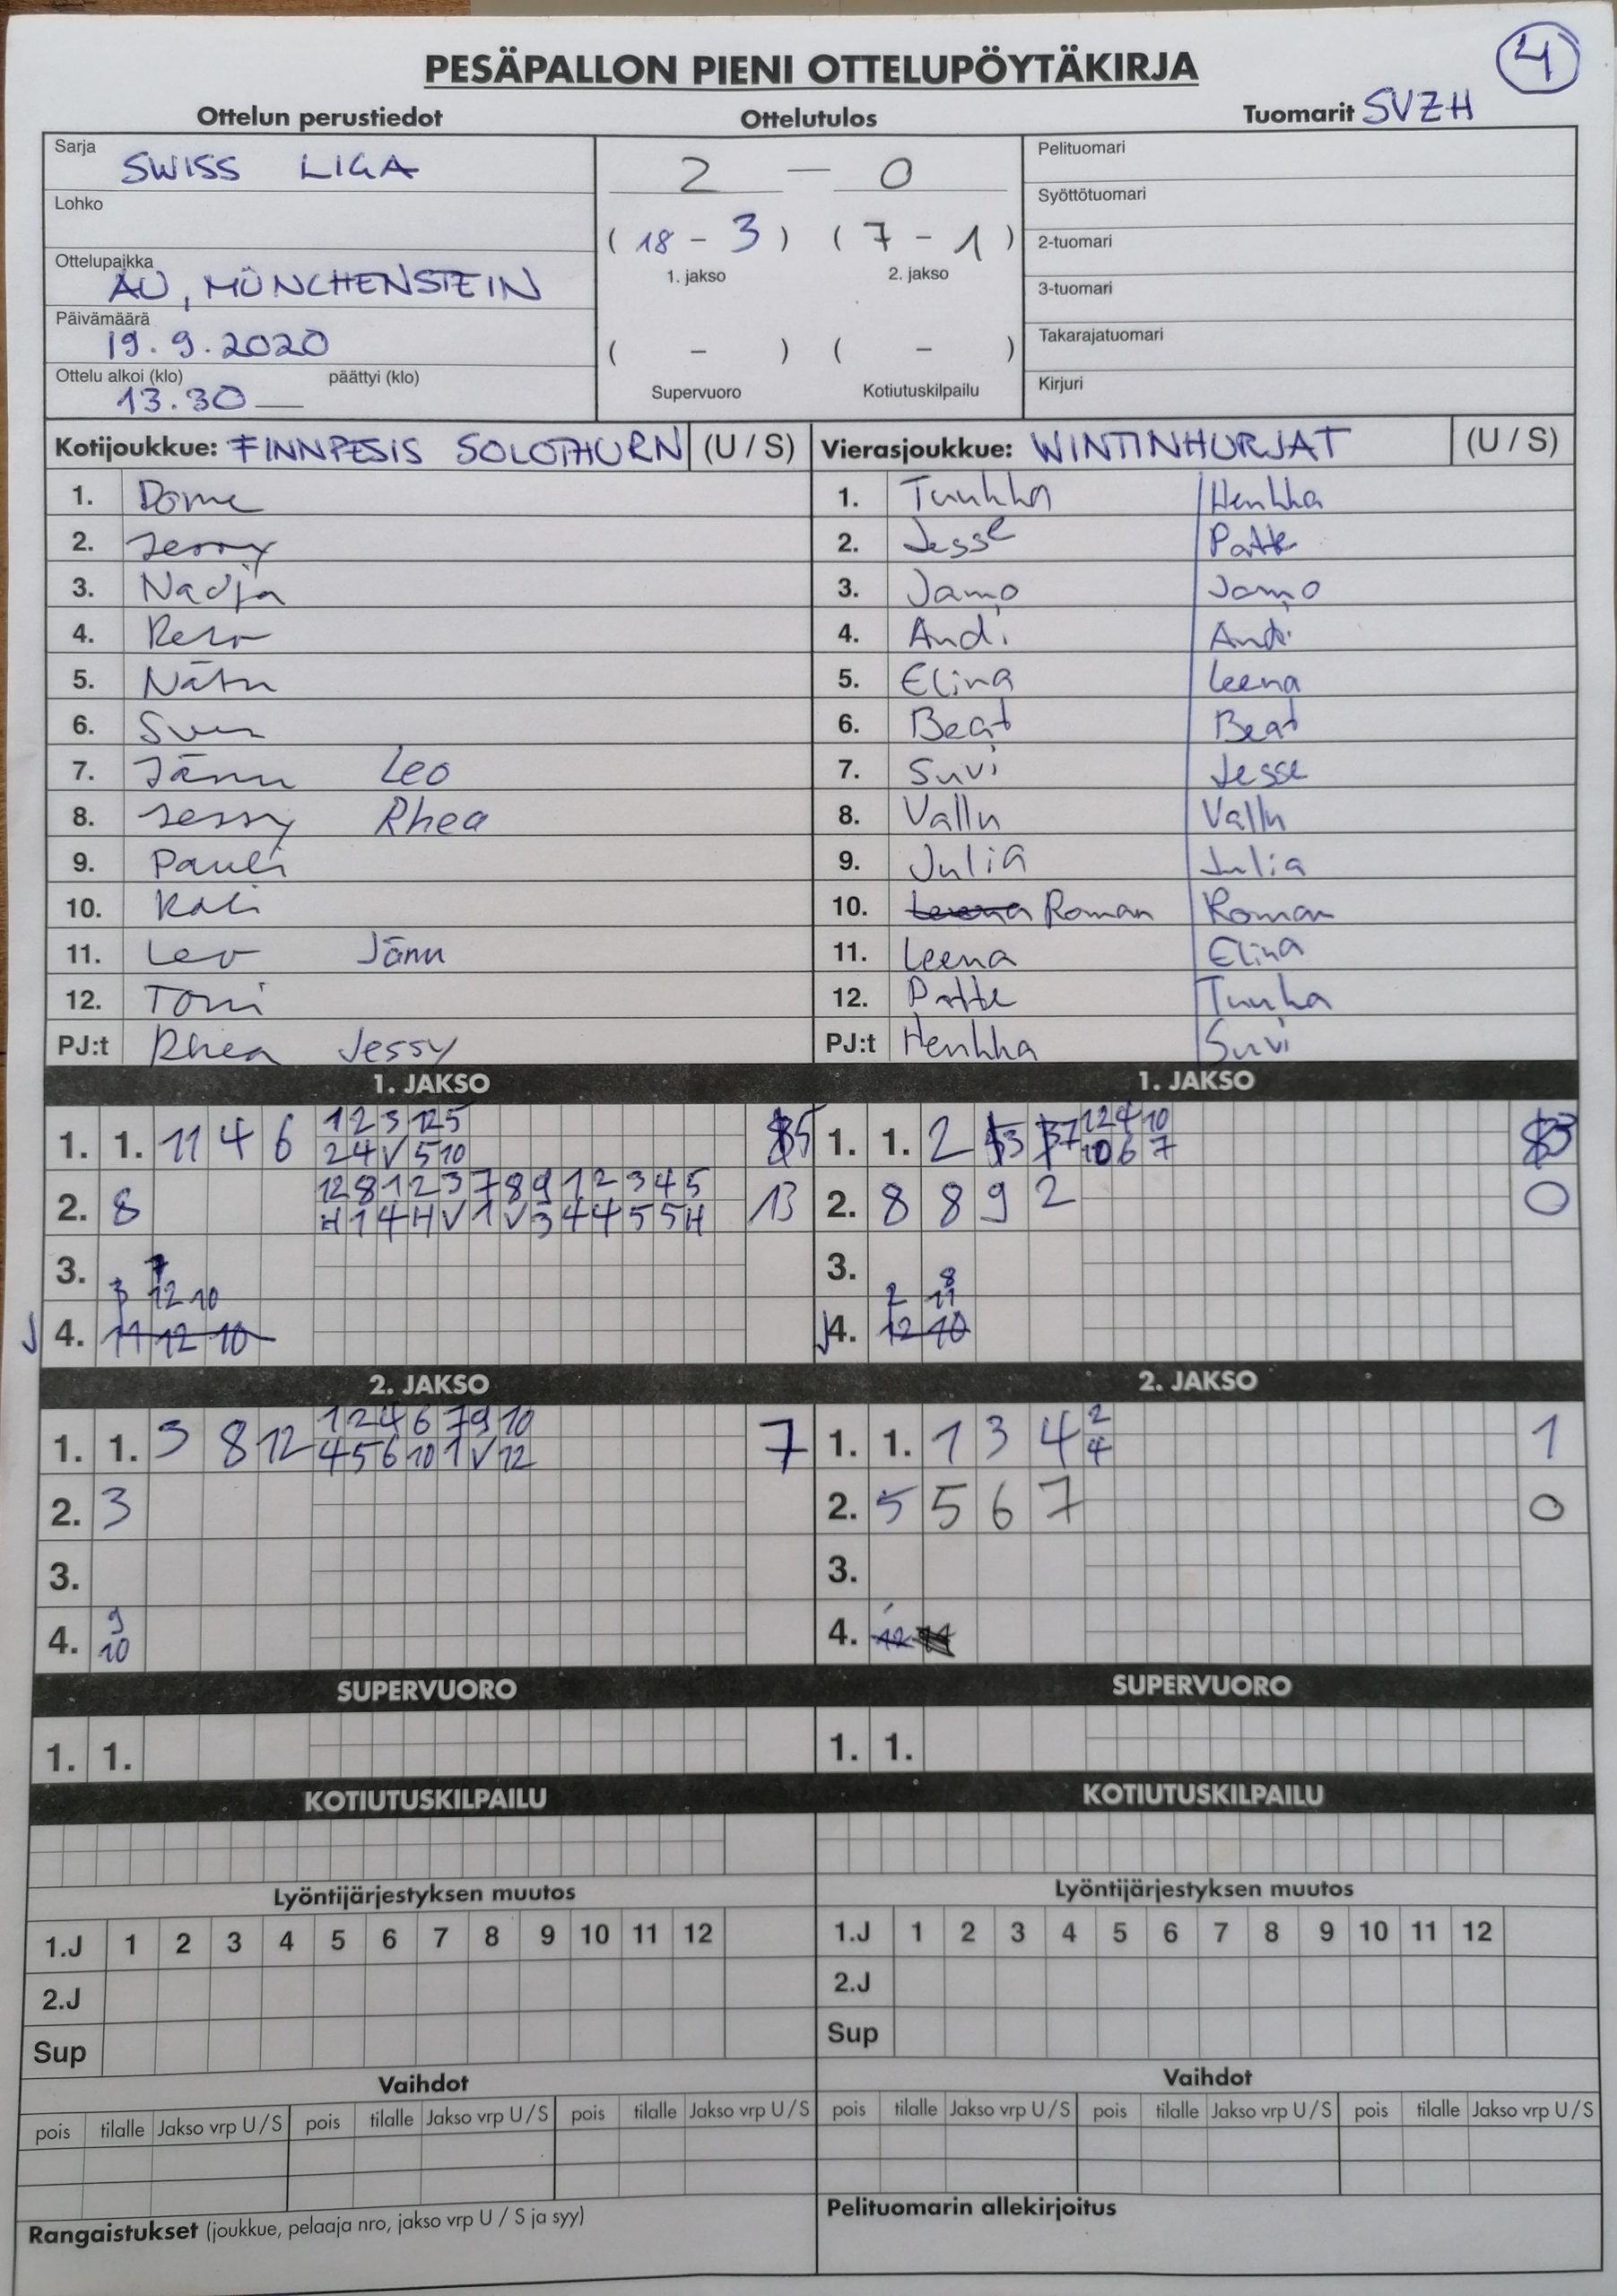 4
PESÄPALLON PIENI OTTELUPÖYTÄKIRJA
Ottelun perustiedot Ottelutulos Tuomarit SVZH
Sarja SWISS LIGA 2 — 0 Pelituomari
Lohko Syöttötuomari
( 18 - 3 ) ( 7 - 1 ) 2-tuomari
1. jakso 2. jakso
Ottelupaikka AU, MÜNCHENSTEIN 3-tuomari
Päivämäärä 19.9.2020 ( - ) ( - ) Takarajatuomari
Ottelu alkoi (klo) 13.30 — päättyi (klo) Supervuoro Kotiutuskilpailu Kirjuri
Kotijoukkue: FINNPESIS SOLOTHURN (U / S) Vierasjoukkue: WINTINHURJAT (U / S)
1. Dome 1. Tuukka Henkka
2. Jerry 2. Jesse Patte
3. Nadja 3. Jamo Jamo
4. Reto 4. Andi Andi
5. Nätu 5. Elina Leena
6. Sven 6. Beat Beat
7. Jänu Leo 7. Suvi Jesse
8. Jessy Rhea 8. Vallu Vallu
9. Pauli 9. Julia Julia
10. Kali 10. Roman Roman
11. Leo Jänu 11. Leena Elina
12. Toni 12. Patte Tuukka
PJ:t Rhea Jessy PJ:t Henkka Suvi
1. JAKSO 1. JAKSO
1. 1. 11 4 6 1 2 3 12 5 5 1. 1. 2 3 7 12 4 10 3
2 4 V 5 10 10 6 7
2. 8 12 8 1 2 3 7 8 9 1 2 3 4 5 13 2. 8 8 9 2 0
H 1 4 H V 1 V 3 4 4 5 5 H
3. 3.
3 12 10 2 8 11
4. 11 12 10 4. 12 10
2. JAKSO 2. JAKSO
1. 1. 3 8 12 1 2 4 6 7 9 10 7 1. 1. 1 3 4 2 1
4 5 6 10 1 V 12 4
2. 3 2. 5 5 6 7 0
3. 3.
4. 9 10 4. 12
SUPERVUORO SUPERVUORO
1. 1. 1. 1.
KOTIUTUSKILPAILU KOTIUTUSKILPAILU
Lyöntijärjestyksen muutos Lyöntijärjestyksen muutos
1.J 1 2 3 4 5 6 7 8 9 10 11 12 1.J 1 2 3 4 5 6 7 8 9 10 11 12
2.J 2.J
Sup Sup
Vaihdot Vaihdot
pois tilalle Jakso vrp U / S pois tilalle Jakso vrp U / S pois tilalle Jakso vrp U / S pois tilalle Jakso vrp U / S pois tilalle Jakso vrp U / S pois tilalle Jakso vrp U / S
Rangaistukset (joukkue, pelaaja nro, jakso vrp U / S ja syy) Pelituomarin allekirjoitus